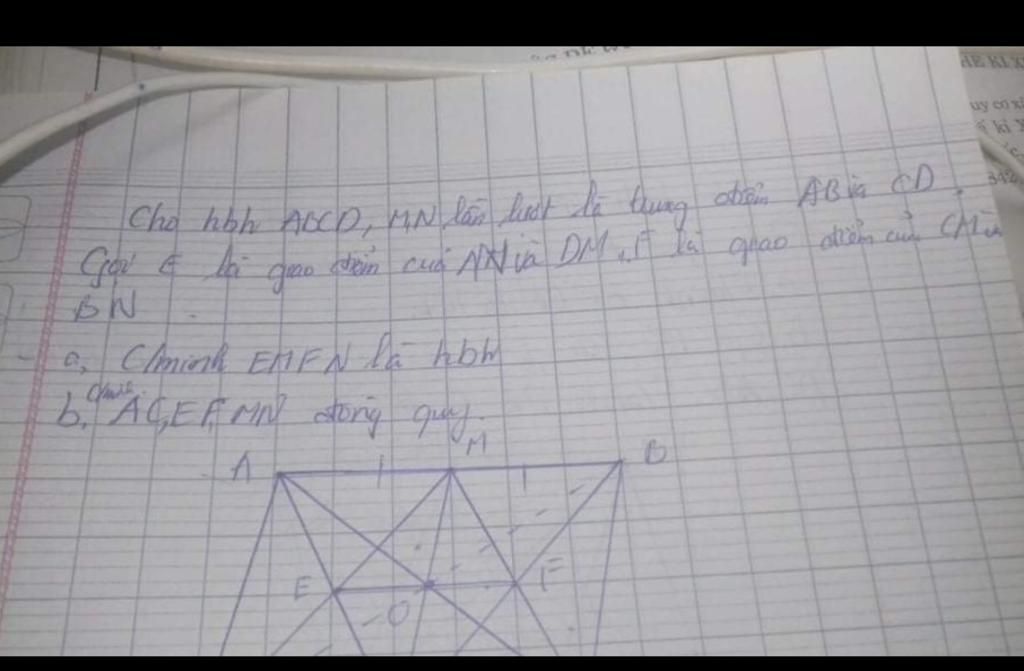 Cho hbh ABCD, M,N lần lượt là trung điểm AB và CD.
Gọi E là giao điểm của AN và DM, F là giao điểm của CM và
BN
a, C/minh EMFN là hbh
C/minh
b, AC, EF, MN đồng quy.
M
A B
E F
O